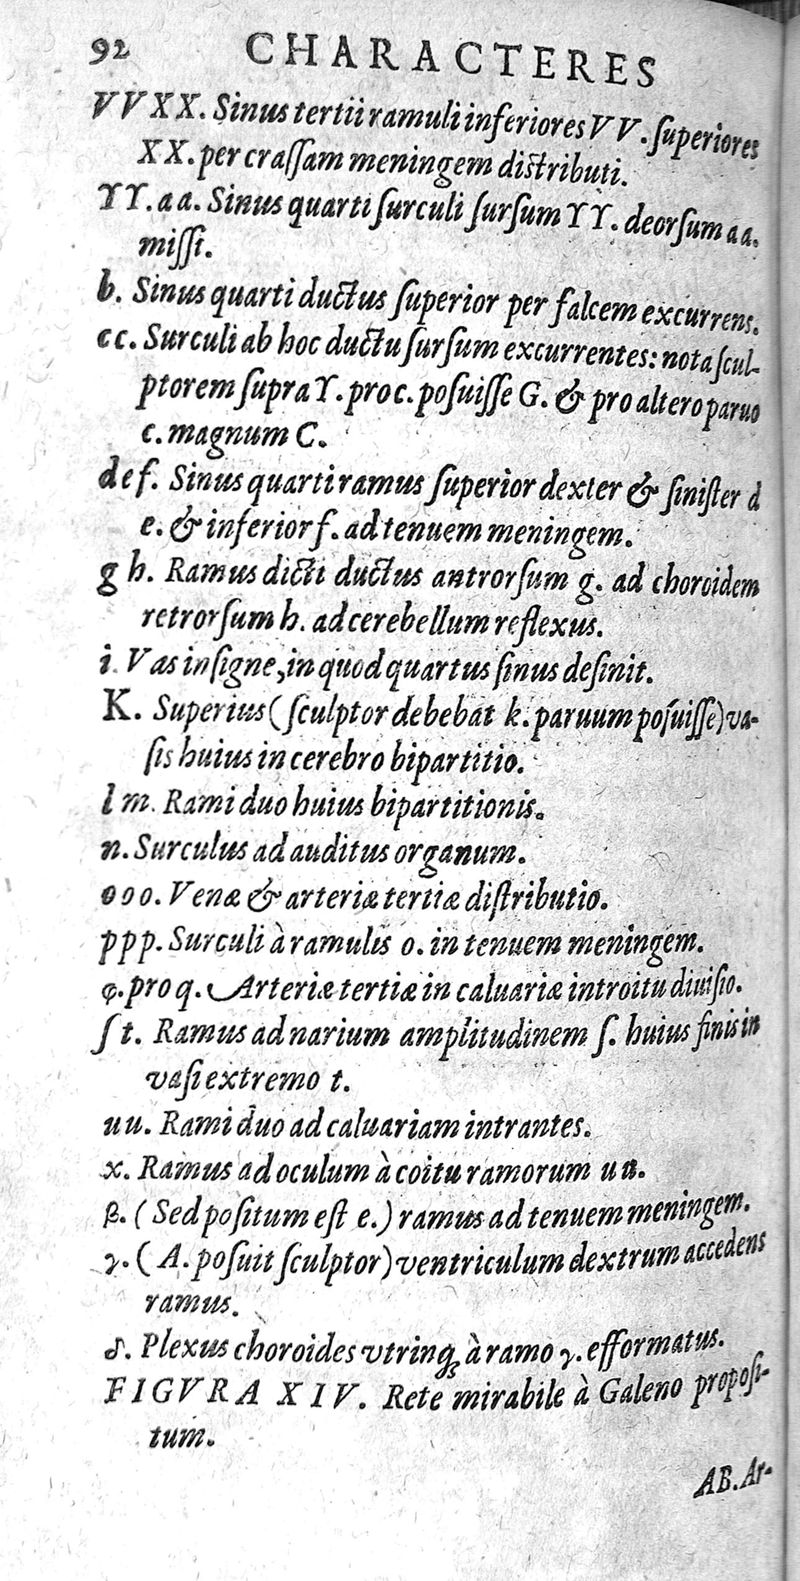 92 CHARACTERES
VVXX. Sinus tertii ramuli inferiores VV. ſuperiores
XX. per craſſam meningem diſtributi.
ϒϒ. aa. Sinus quarti ſurculi ſurſum ϒϒ. deorſum aa.
miſſi.
b. Sinus quarti ductus ſuperior per falcem excurrens.
cc. Surculi ab hoc ductu ſurſum excurrentes: nota ſcul-
ptorem ſupra ϒ. pro c. poſuiſſe G. & pro altero paruo
c. magnum C.
def. Sinus quarti ramus ſuperior dexter & ſiniſter d
e. & inferior f. ad tenuem meningem.
g h. Ramus dicti ductus antrorſum g. ad choroidem
retrorſum h. ad cerebellum reflexus.
i. Vas inſigne, in quod quartus ſinus deſinit.
K. Superius (ſculptor debebat k. paruum poſuiſſe) va-
ſis huius in cerebro bipartitio.
l m. Rami duo huius bipartitionis.
n. Surculus ad auditus organum.
ooo. Venæ & arteriæ tertiæ diſtributio.
ppp. Surculi à ramulis o. in tenuem meningem.
φ. pro q. Arteriæ tertiæ in caluariæ introitu diuiſio.
ſ t. Ramus ad narium amplitudinem ſ. huius finis in
vaſi extremo t.
uu. Rami duo ad caluariam intrantes.
x. Ramus ad oculum à coitu ramorum uu.
β. (Sed poſitum eſt e.) ramus ad tenuem meningem.
γ. (A. poſuit ſculptor) ventriculum dextrum accedens
ramus.
δ. Plexus choroides vtrinq; à ramo γ. efformatus.
FIGVRA XIV. Rete mirabile à Galeno propoſi-
tum.
AB. Ar-